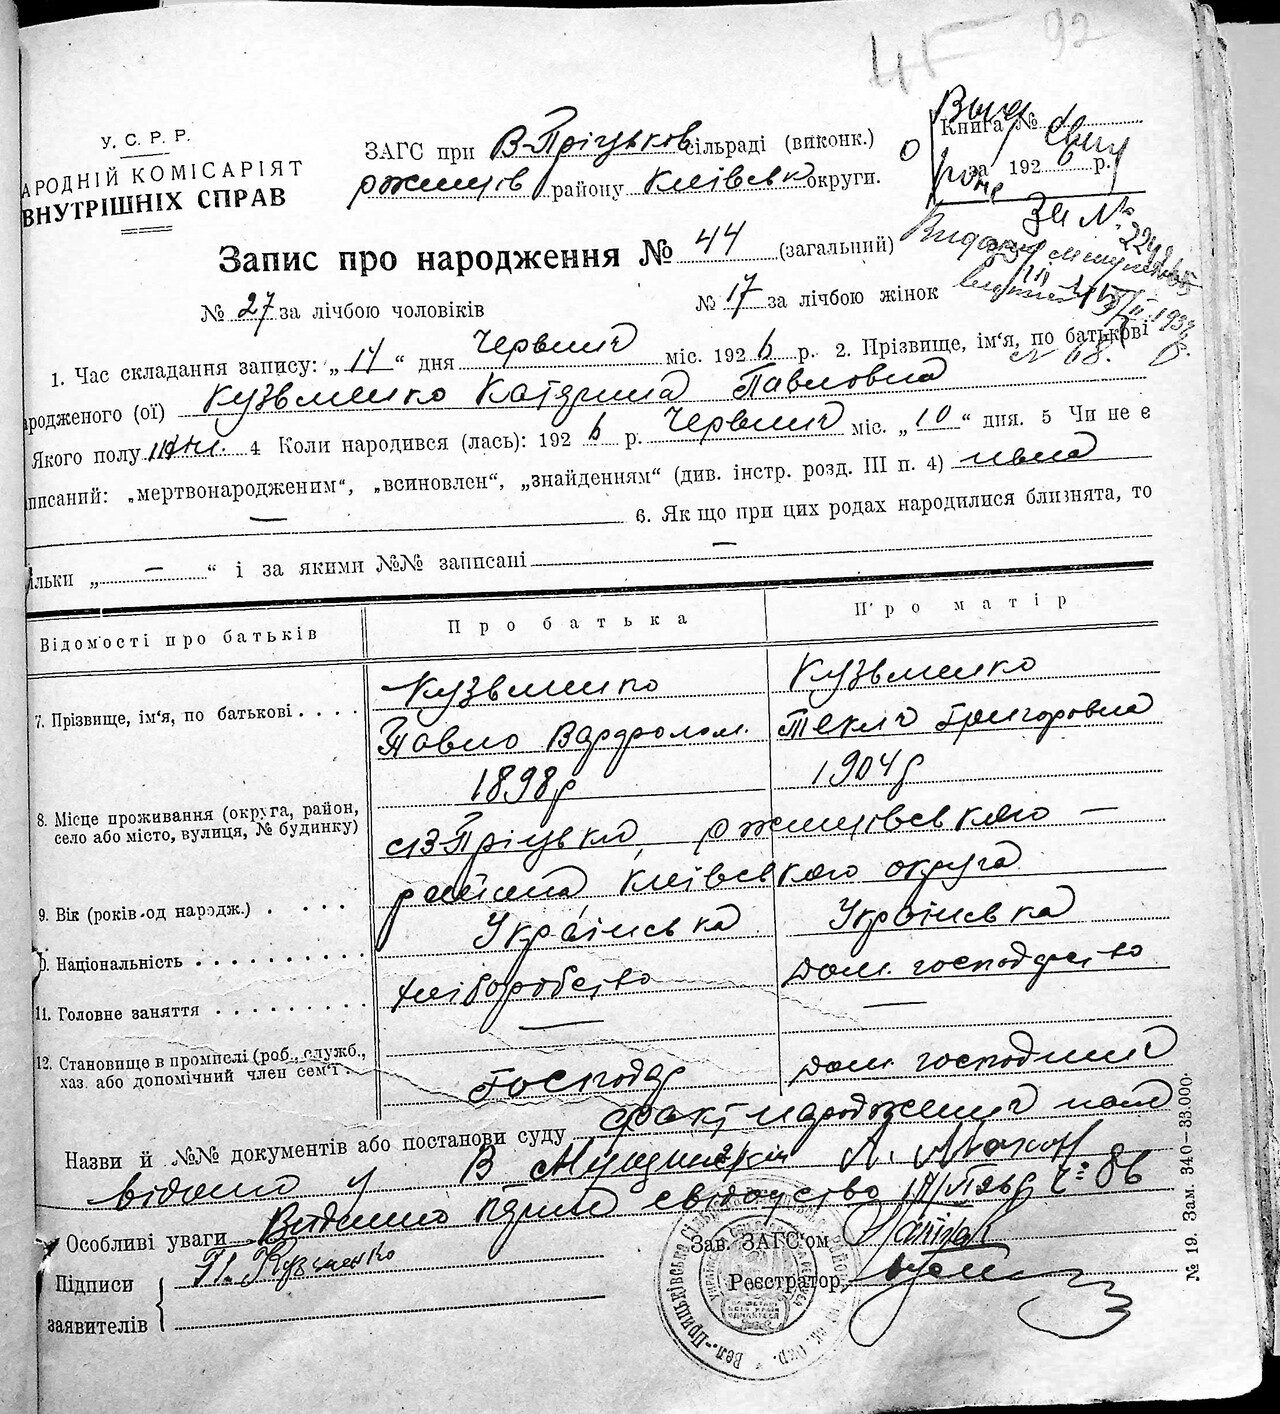 92
У. С. Р. Р.
АРОДНІЙ КОМІСАРІЯТ
ВНУТРІШНІХ СПРАВ
ЗАГС при В-Пріцьков сільраді (виконк.)
ржищів району Київськ округи.
Книга №
за 1926 р.
Запис про народження № 44 (загальний)
№ 27 за лічбою чоловіків № 17 за лічбою жінок
1. Час складання запису: „14“ дня Червня міс. 1926 р. 2. Прізвище, ім‘я, по батькові
ародженого (ої) Кузьменко Катярина Павловна
Якого полу жін. 4 Коли народився (лась): 1926 р. Червня міс. „10“ дня. 5 Чи не є
писаний: „мертвонародженим“, „всиновлен“, „знайденням“ (див. інстр. розд. III п. 4) нема
— 6. Як що при цих родах народилися близнята, то
ільки „ — “ і за якими №№ записані —
Відомості про батьків Про батька Про матір
7. Прізвище, ім‘я, по батькові Кузьменко Кузьменко
Павло Варфолом. Текля Григоровна
1898р 1904р
8. Місце проживання (округа, район,
село або місто, вулиця, № будинку)
с В-Пріцьки, ржищівського —
района Київського округа
9. Вік (років од народж.)
Національність Українська Українська
11. Головне заняття хліборобство дом. господарство
— —
12. Становище в промислі (роб., служб.,
хаз. або допомічний член сем‘ї Господар дом. господиня
Назви й №№ документів або постанови суду факт народження нам
відомо
Особливі уваги Видано свідоцтво
Підписи П. Кузьменко
заявителів
Зав. ЗАГС‘ом
Реєстратор
№ 19. Зам. 340—33.000.